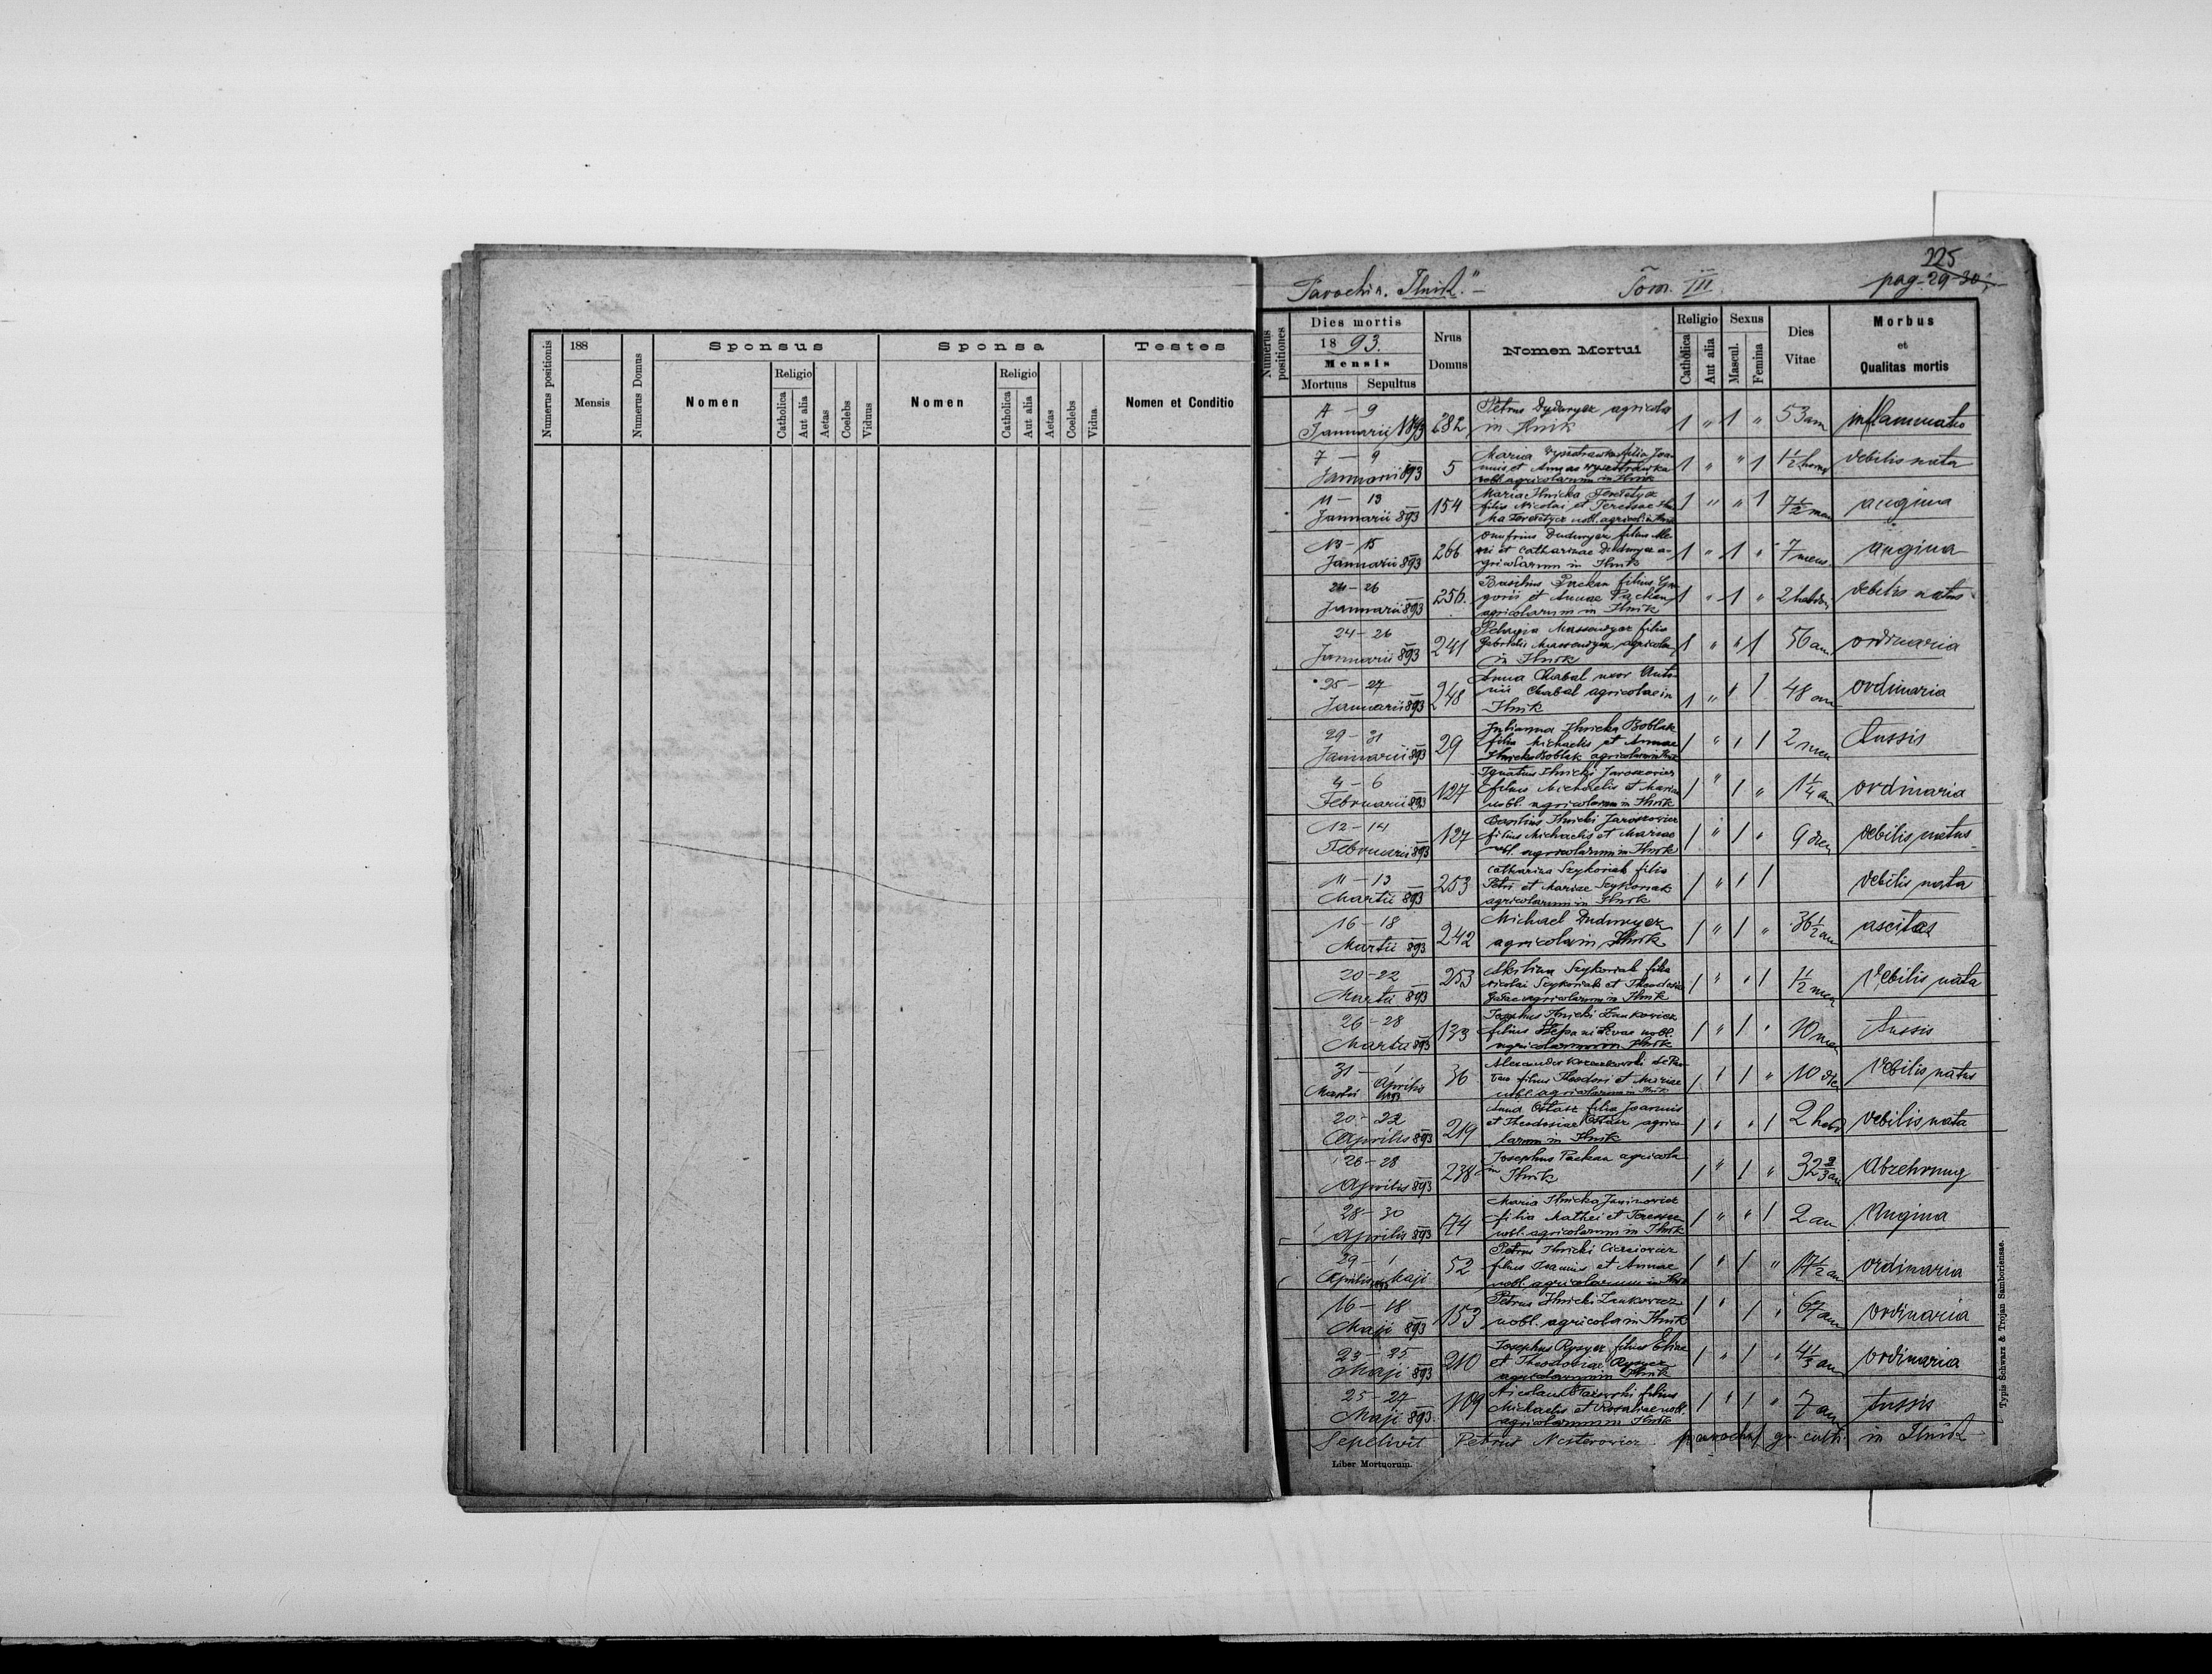 188
Numerus positionis
Mensis
Numerus Domus
Sponsus
Nomen
Religio
Catholica
Aut alia
Aetas
Coelebs
Viduus
Sponsa
Nomen
Religio
Catholica
Aut alia
Aetas
Coelebs
Vidua
Testes
Nomen et Conditio
225
Parochia "Ilnik" Tom. III pag. 29-30
Numerus positiones
Dies mortis
1893.
Mensis
Mortuus Sepultus
Nrus Domus
Nomen Mortui
Religio
Catholica
Aut alia
Sexus
Mascul.
Femina
Dies Vitae
Morbus et Qualitas mortis
7 – 9
Januarii 1893 282 Petrus agricola
in Ilnik 1 " 1 " 53 ann inflammatio
7 – 9
Januarii 893 5 Maria filia Joa-
nnis et Annae
nobl. agricolarum in Ilnik 1 " " 1 debilis nata
11 – 13
Januarii 893 154 Maria Ilnicka
filia Nicolai et Teressae
nobl. agricol. in Ilnik 1 " " 1 7 1/2 men angina
13 – 15
Januarii 893 266 Onufrius Dudwyez filius
et Catharinae Dudwyez a-
gricolarum in Ilnik 1 " 1 " 7 mens angina
24 – 26
Januarii 893 256. Basilius Packan filius Gre-
gorii et Annae Packan
agricolarum in Ilnik 1 " 1 " 2 hebdom debilis natus
24 – 26
Januarii 893 241 filia
Gabrielis agricolae
in Ilnik 1 " " 1 56 ann ordinaria
25 – 27
Januarii 893 248 Anna Chabal uxor Anto-
nii Chabal agricolae in
Ilnik 1 " " 1 48 ann ordinaria
29 – 31
Januarii 893 29 Julianna Ilnicka Boblak
filia Michaelis et Annae
Ilnicka Boblak agricolarum in Ilnik 1 " " 1 2 men tussis
4 – 6
Februarii 893 127 Ignatius Ilnicki Jaroszowicz
filius Michaelis et Mariae
nobl. agricolarum in Ilnik 1 " 1 " 1 1/4 an ordinaria
12 – 14
Februarii 893 127 Basilius Ilnicki Jaroszowicz
filius Michaelis et Mariae
nobl. agricolarum in Ilnik 1 " 1 " 9 dies debilis natus
11 – 13
Martii 893 253 Catharina Szykoriak filia
Petri et Mariae Szykoriak
agricolarum in Ilnik 1 " " 1 debilis nata
16 – 18
Martii 893 242 Michael Dudwyez
agricola in Ilnik 1 " 1 " 36 1/2 an ascitas
20 – 22
Martii 893 253 Szykoriak filia
Nicolai Szykoriak et Theodosiae
agricolarum in Ilnik 1 " " 1 1 1/2 men debilis nata
26 – 28
Martii 893 133 Josephus Ilnicki Zankowicz
filius Stepani nobl.
agricolarum in Ilnik 1 " 1 " 10 men tussis
31 – 1
Martii Aprilis 893 36 Alexander
filius Theodori et Mariae
nobl. agricolarum in Ilnik 1 " 1 " 10 dies debilis natus
20 – 22
Aprilis 893 219 Anna filia Joannis
et Theodosiae agrico-
larum in Ilnik 1 " " 1 2 hebd debilis nata
26 – 28
Aprilis 893 238 Josephus Packan agricola
in Ilnik 1 " 1 " 32 2/3 an Abzehrung
28 – 30
Aprilis 893 74 Maria Ilnicka Janinowicz
filia Mathei et Teressae
nobl. agricolarum in Ilnik 1 " " 1 2 an Angina
29 – 1
Aprilis 893 Maji 52 Petrus Ilnicki
filius Joannis et Annae
nobl. agricolarum in Ilnik 1 " 1 " 17 1/2 an ordinaria
16 – 18
Maji 893 153 Petrus Ilnicki Zankowicz
nobl. agricola in Ilnik 1 " 1 " 67 ann ordinaria
23 – 25
Maji 893 210 Josephus Ryzyez filius Eliae
et Theodosiae Ryzyez
agricolarum in Ilnik 1 " 1 " 4 1/3 an ordinaria
25 – 27
Maji 893 109 Nicolaus filius
Michaelis et Rosaliae nobl.
agricolarum in Ilnik 1 " 1 " 7 ann tussis
Sepelivit Petrus Nesterowicz parochus gr. cath. in Ilnik
Liber Mortuorum.
Typis Schwarz & Trojan Samboriensae.